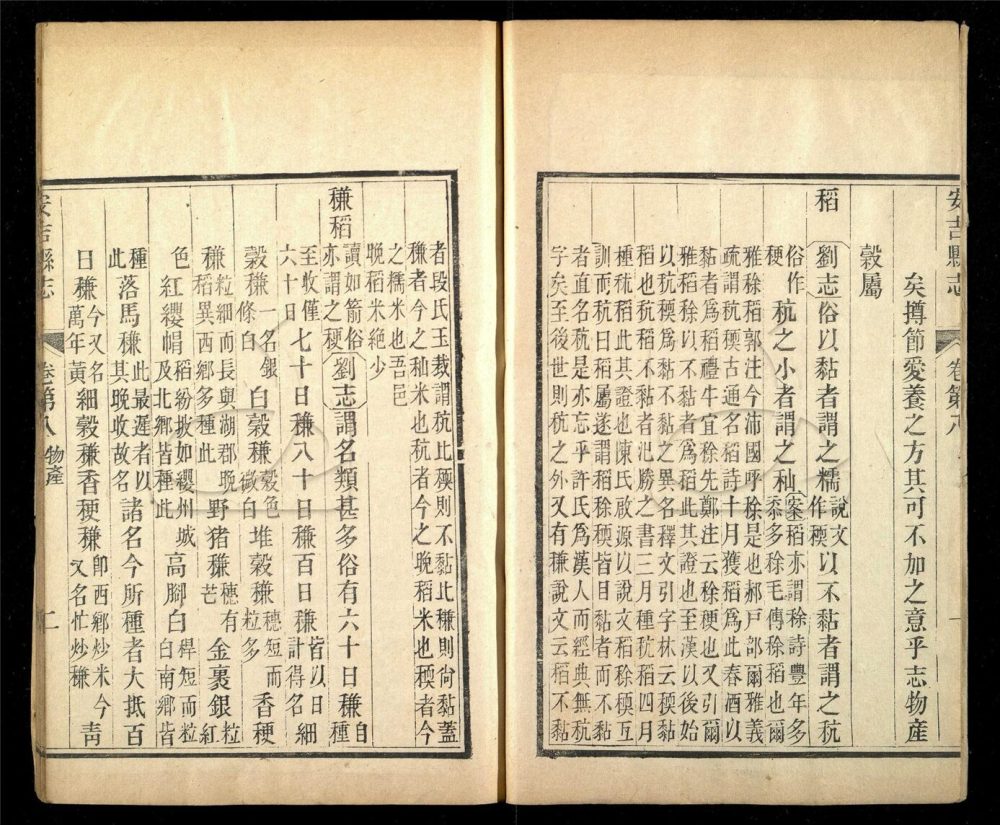 安吉縣志 卷第八 一
矣撙節愛養之方其可不加之意乎志物產
穀屬
稻 劉志俗以黏者謂之糯說文作稬以不黏者謂之秔
俗作稉秔之小者謂之秈案稻亦謂稌詩豐年多黍多稌毛傳稌稻也爾
雅稌稻郭注今沛國呼稌是也郝戸部爾雅義
疏謂秔稬古通名稻詩十月獲稻爲此春酒以
黏者爲稻禮牛宜稌先鄭注云稌稉也又引爾
雅稻稌以不黏者爲稻此其證也至漢以後始
以秔稬爲黏不黏之異名釋文引字林云稬黏
稻也秔稻不黏者氾勝之書三月種秔稻四月
種秫稻此其證也陳氏啟源以說文稻稌稬互
訓而秔曰稻屬遂謂稻稌稬皆目黏者而不黏
者直名秔是亦忘乎許氏爲漢人而經典無秔
字矣至後世則秔稬之外又有稴說文云稻不黏
者段氏玉裁謂秔比稬則不黏比稴則尙黏蓋
稴者今之秈米也秔者今之晚稻米也稬者今
之糯米也吾邑
晚稻米絶少
稴稻 讀如箭俗亦謂之稉劉志謂名類甚多俗有六十日稴自種
至收僅六十日七十日稴八十日稴百日稴皆以日計得名細
穀稴一名銀條白白穀稴穀色微白堆穀稴穗短而粒多香稉
稴粒細而長與湖郡晚稻異西鄉多種此野猪稴穗有芒金裹銀粒紅
色紅纓帽稻紛披如纓州城及北鄉皆種此高腳白稈短而粒白南鄉皆
種此落馬稴此最遲者以其晚收故名諸名今所種者大抵百
日稴今又名萬年黃細穀稴香稉稴卽西鄉炒米今又名忙炒稴靑
安吉縣志 卷第八 物產 二